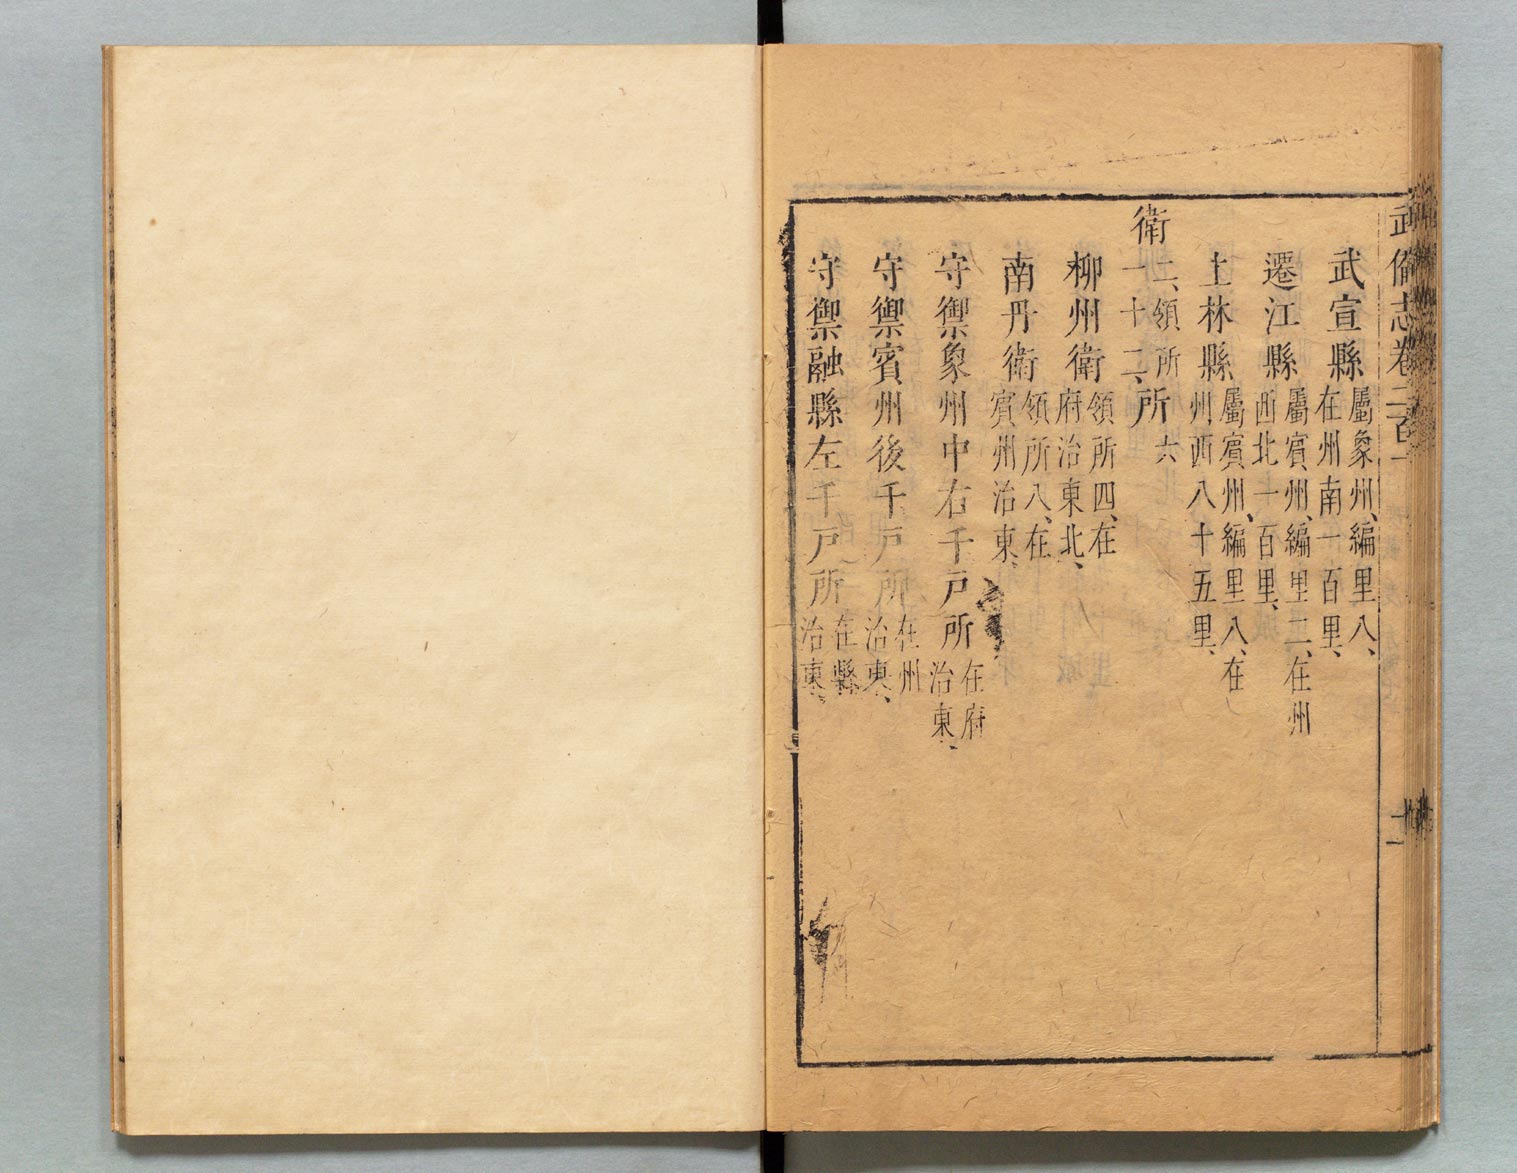 武備志卷二百一
武宣縣屬象州、編里八、在州南一百里、
遷江縣屬賓州、編里二、在州西北一百里、
上林縣屬賓州、編里八、在州西八十五里、
衛二、領所一十二、所六
柳州衛領所四、在府治東北、
南丹衛領所八、在賓州治東、
守禦象州中右千戶所在府治東、
守禦賓州後千戶所在州治東、
守禦融縣左千戶所在縣治東、